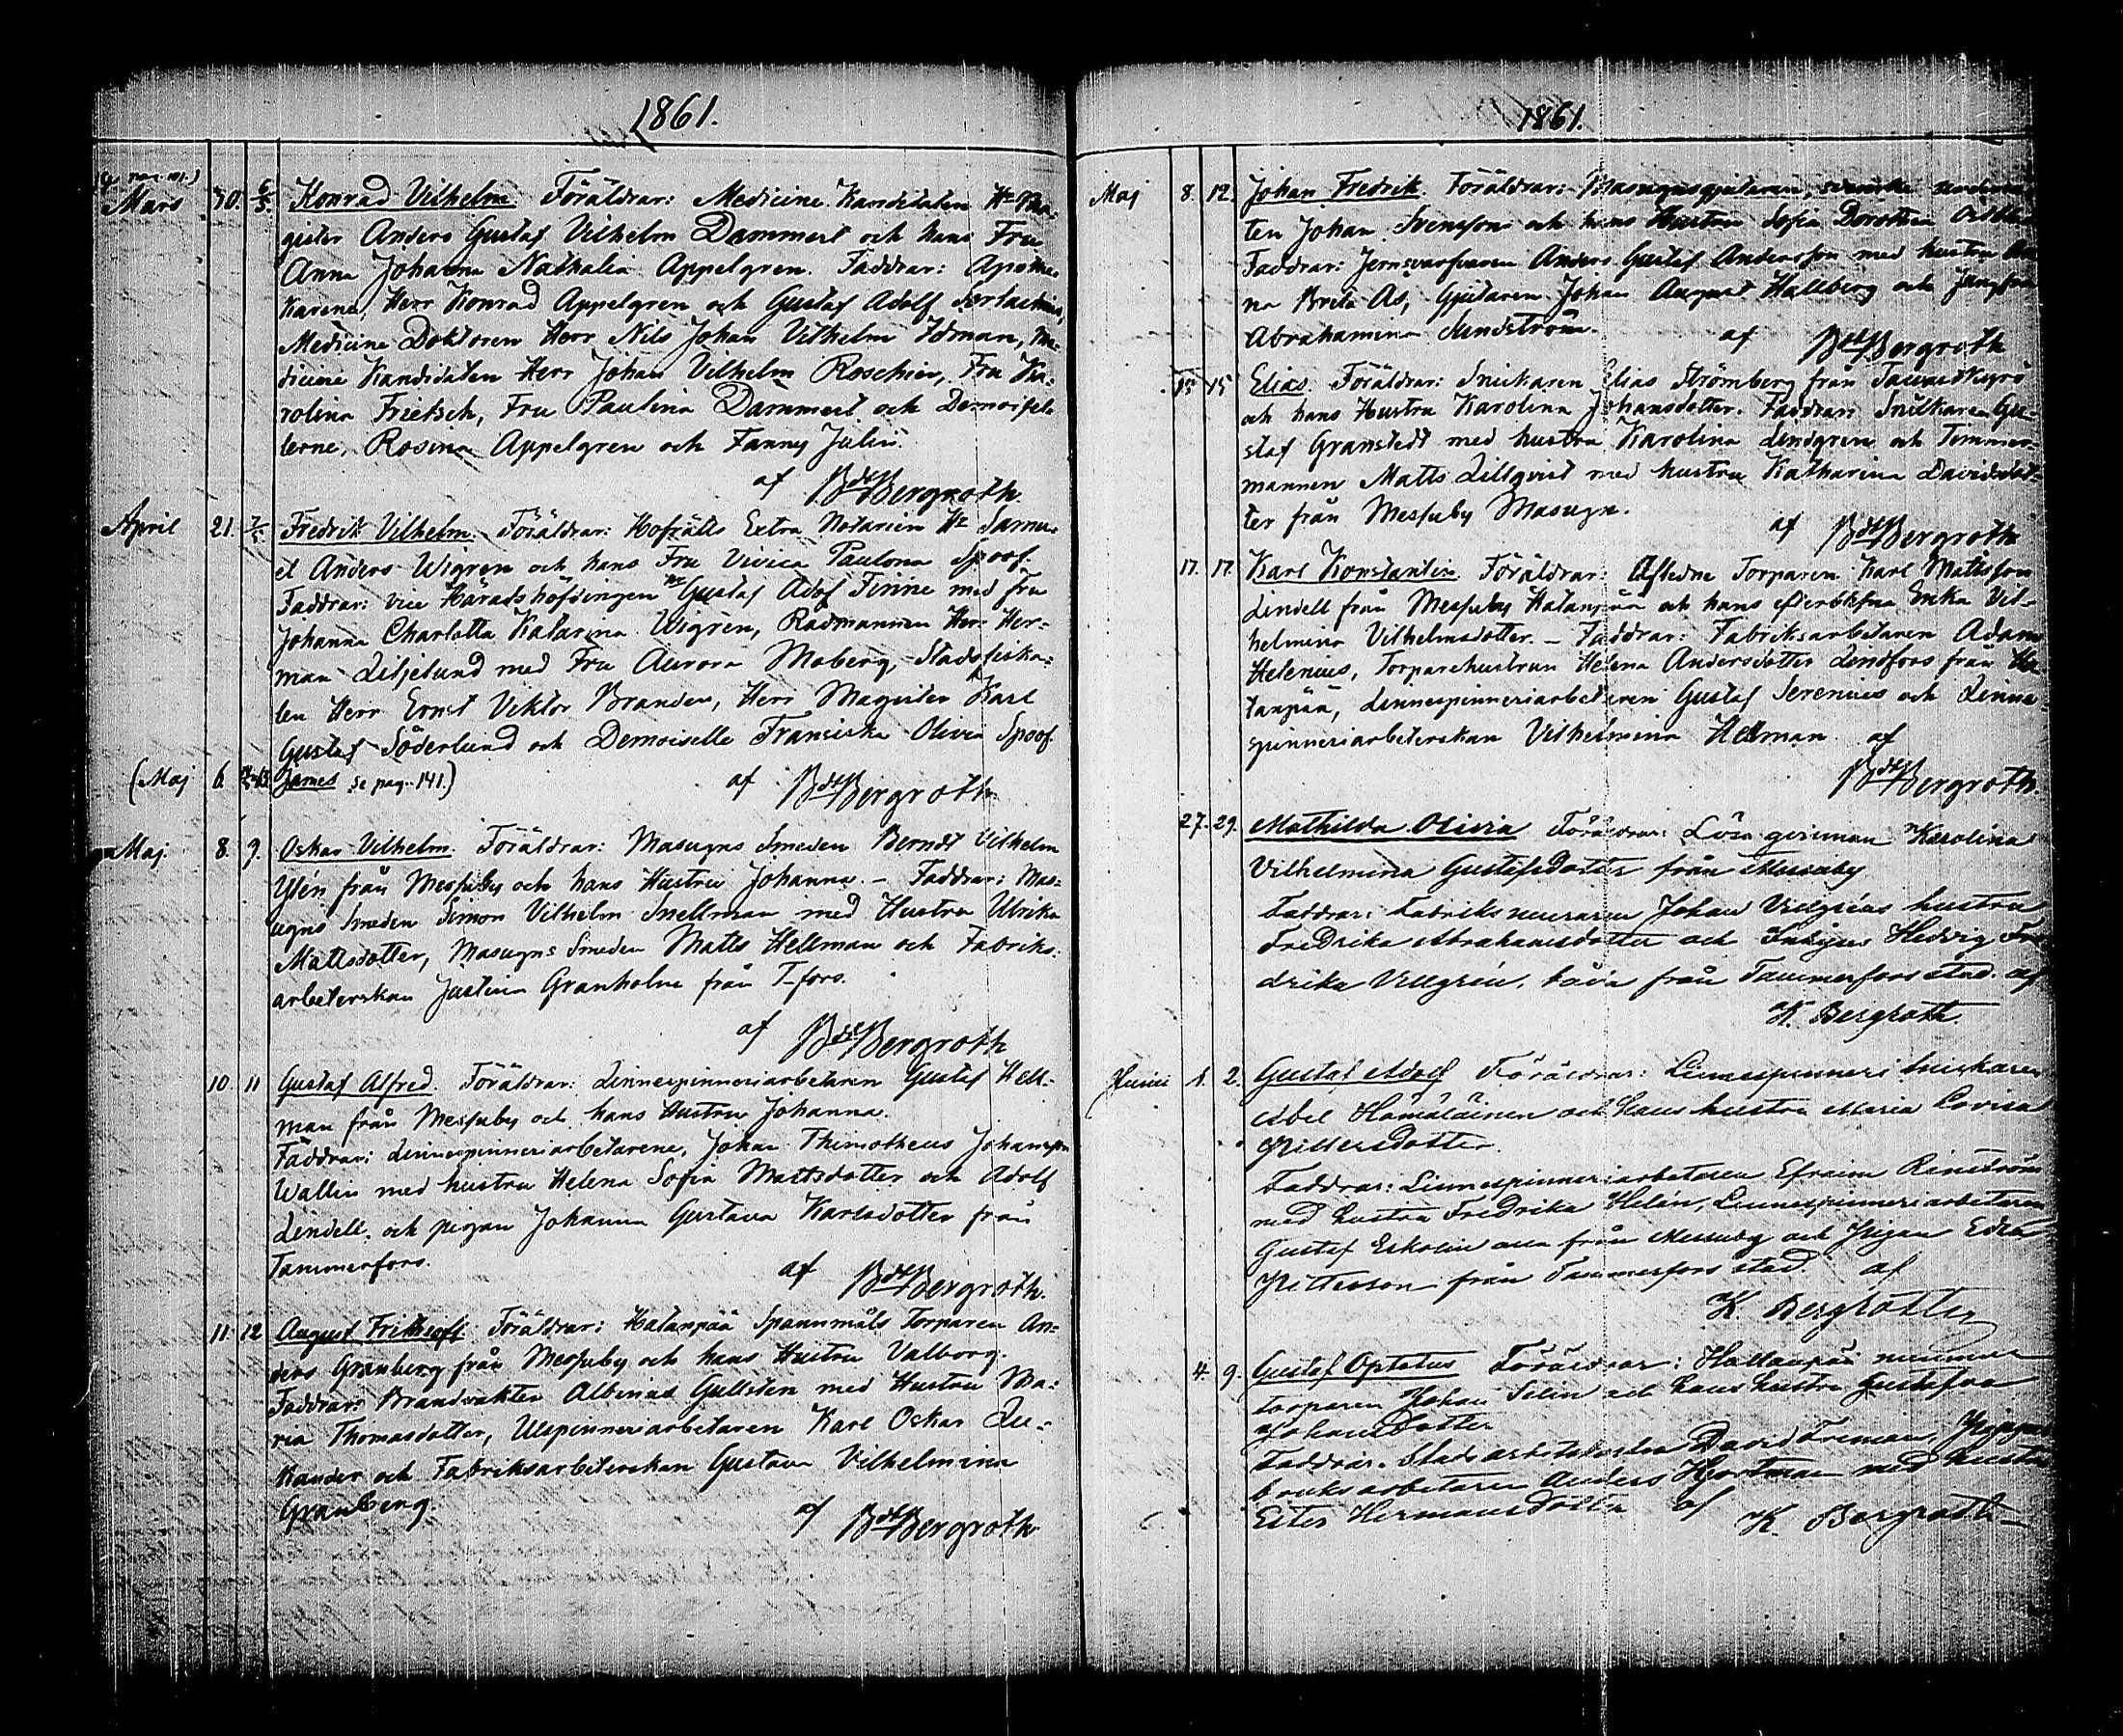 1861.
Mars 30. 6/5. Konrad Vilhelm. Föräldrar: Medicine Kandidaten Hr Ma-
gister Anders Gustaf Vilhelm Dammert och hans Fru
Anna Johanna Nathalia Appelgren. Faddrar: Apothe-
karene, Herr Konrad Appelgren och Gustaf Adolf
Medicine Doktoren Herr Nils Johan Vilhelm Idman, Me-
dicine Kandidaten Herr Johan Vilhelm Roschier, Fru Ka-
rolina Frietsch, Fru Paulina Dammert och Demoisel-
lerne, Rosina Appelgren och Fanny Julin.
af BdtBergroth.
April 21. 7/5. Fredrik Vilhelm. Föräldrar: Hofrätts Extra Notarien Hr Samu-
el Anders Wigren och hans Fru Vivica Paulona Spoof.
Faddrar: vice Häradshöfdingen Hr Gustaf Adof Finne med fru
Johanna Charlotta Katarina Wigren, Rådmannen Herr Her-
man Liljelund med Fru Aurora Moberg, Stadsfiska-
len Herr Ernst Viktor Brander, Herr Magister Karl
Gustaf Söderlund och Demoiselle Franciska Olivia Spoof.
(Maj 6. James se pag. 141.) af BdtBergroth.
Maj. 8. 9. Oskar Vilhelm. Föräldrar: Masugns Smeden Berndt Vilhelm
från Messuby och hans Hustru Johanna. – Faddrar: Mas-
ugns Smeden Simon Vilhelm Snellman med Hustru Ulrika
Mattsdotter, Masugns Smeden Matts Hellman och Fabriks-
arbeterskan Justina Granholm från T-fors.
af BdtBergroth
10. 11 Gustaf Alfred. Föräldrar: Linnespinneriarbetaren Gustaf Hell-
man från Messuby och hans Hustru Johanna.
Faddrar: Linnespinneriarbetarene, Johan Thimotheus Johansson
Wallin med hustru Helena Sofia Mattsdotter och Adolf
Lindell, och pigan Johanna Gustava Karlsdotter från
Tammerfors.
af BdtBergroth.
11. 12 August Frithioff. Föräldrar: Hatanpää Spannmåls Torparen An-
ders Granberg från Messuby och hans Hustru Valborg.
Faddrar: Brandvakten Albinus Gullsten med Hustru Ma-
ria Thomasdotter, Ulspinneriarbetaren Karl Oskar Lu-
kander och Fabriksarbeterskan Gustava Vilhelmina
Granberg.
af BdtBergroth
1861.
Maj 8. 12. Johan Fredrik. Föräldrar: Masugnsgjutaren, svenske underså-
ten Johan Svensson och hans Hustru Sofia Dorothea
Faddrar: Anders Gustaf Andersson med hustru An-
na Brita Ås, Gjutaren Johan August Hallberg och Jungfrun
Abrahamina Sundström.
af BdtBergroth
15 15 Elias. Föräldrar: Snickaren Elias Strömberg från Tavastkyrö
och hans Hustru Karolina Johansdotter. Faddrar: Snickaren Gu-
staf Granstedt med hustru Karolina Lindgren och Timmer-
mannen Matts Lillqvist med hustru Katharina Davidsdot-
ter från Messuby Masugn.
af BdtBergroth
17. 17. Karl Konstantin. Föräldrar: Aflidne Torparen Karl Mattsson
Lindell från Messuby Hatanpää och hans efterblefna Enka Vil-
helmina Vilhelmsdotter. – Faddrar: Fabriksarbetaren Adam
Helenius, Torparehustrun Helena Andersdotter Lindfors från Ha-
tanpää, Linnespinneriarbetaren Gustaf Serenius och Linne-
spinneriarbeterskan Vilhelmina Hellman. af
BdtBergroth.
27. 29. Mathilda Olivia Föräldrar: Lösa qvinnan Karolina
Vilhelmina Gustafsdotter från Messuby
Faddrar: Fabriks muraren Johan Villgréns hustru
Fredrika Abrahamsdotter och Hedvig Fre-
drika Villgrén, båda från Tammerfors stad. af
K. Bergroth.
Junii 1. 2. Gustaf Adolf Föräldrar: Linnespinneri Snickaren
Abel Hämäläinen och hans hustru Maria Lovisa
Faddrar: Linnespinneriarbetaren Efraim Renström
med hustru Fredrika Helén, Linnespinneriarbetaren
Gustaf Eskolin alla från Messuby och Pigan Edla
Petterson från Tammerfors stad. af
K. Bergroth
4. 9. Gustaf Optatus Föräldrar:
torparen Johan Selin och hans hustru Gustafva
Johansdotter
Faddrar: David
bruksarbetaren Anders Hjortman med hustru
Ester Hermansdotter af K. Bergroth